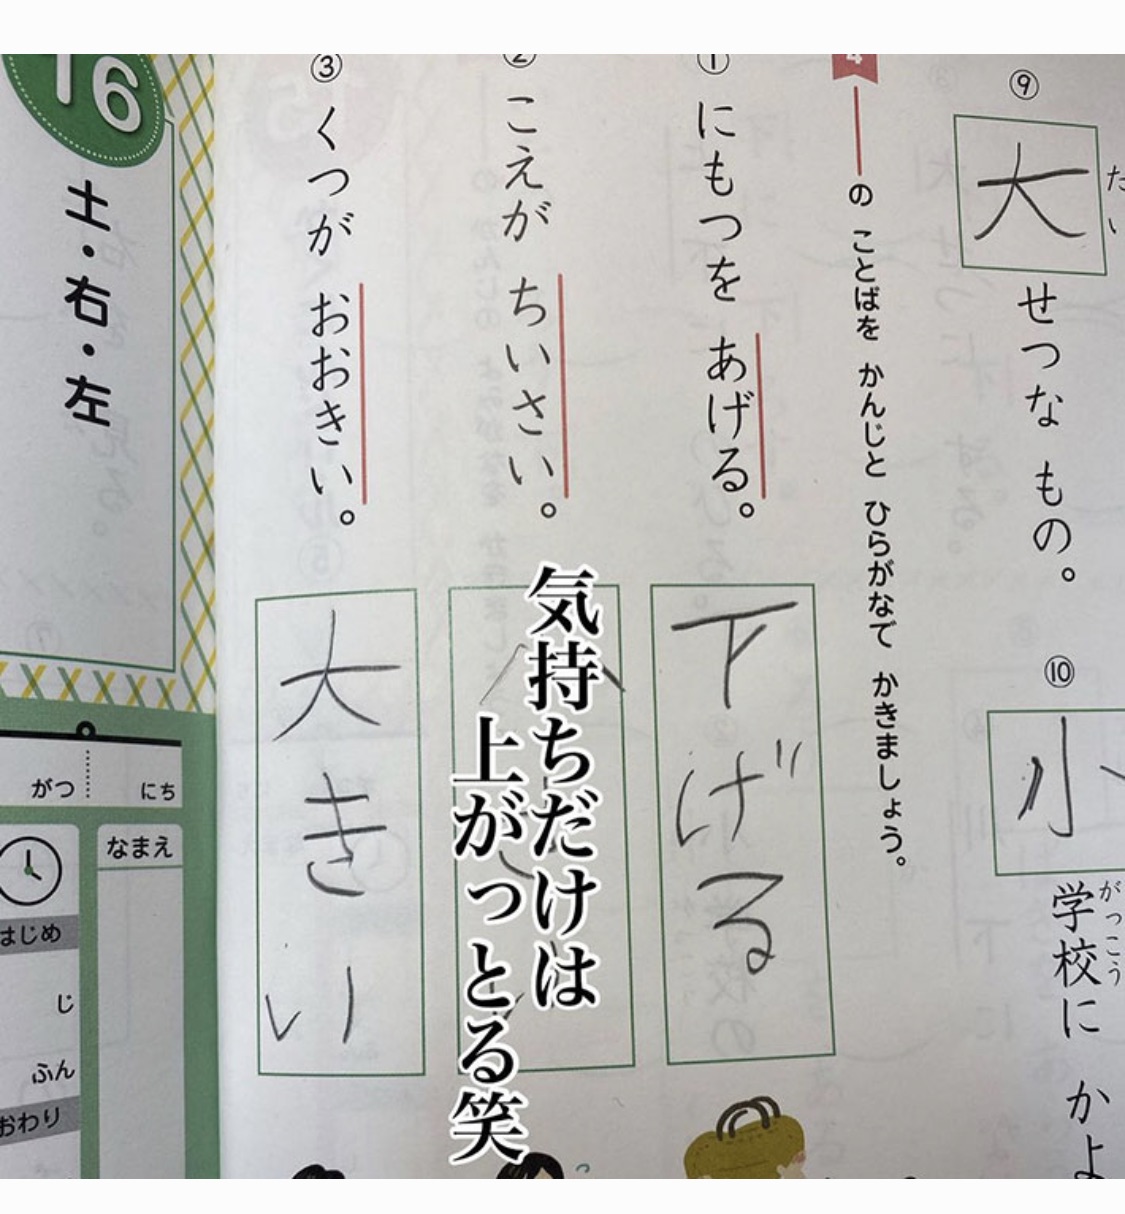 ⑨
大
たい
せつな もの。
⑩
小
学校に かよ
がっこう
4
の ことばを かんじと ひらがなで かきましょう。
① にもつを あげる。
下げる
② こえが ちいさい。
③ くつが おおきい。
大きい
気持ちだけは
上がっとる笑
16
土・右・左
がつ
にち
なまえ
はじめ
じ
ふん
おわり